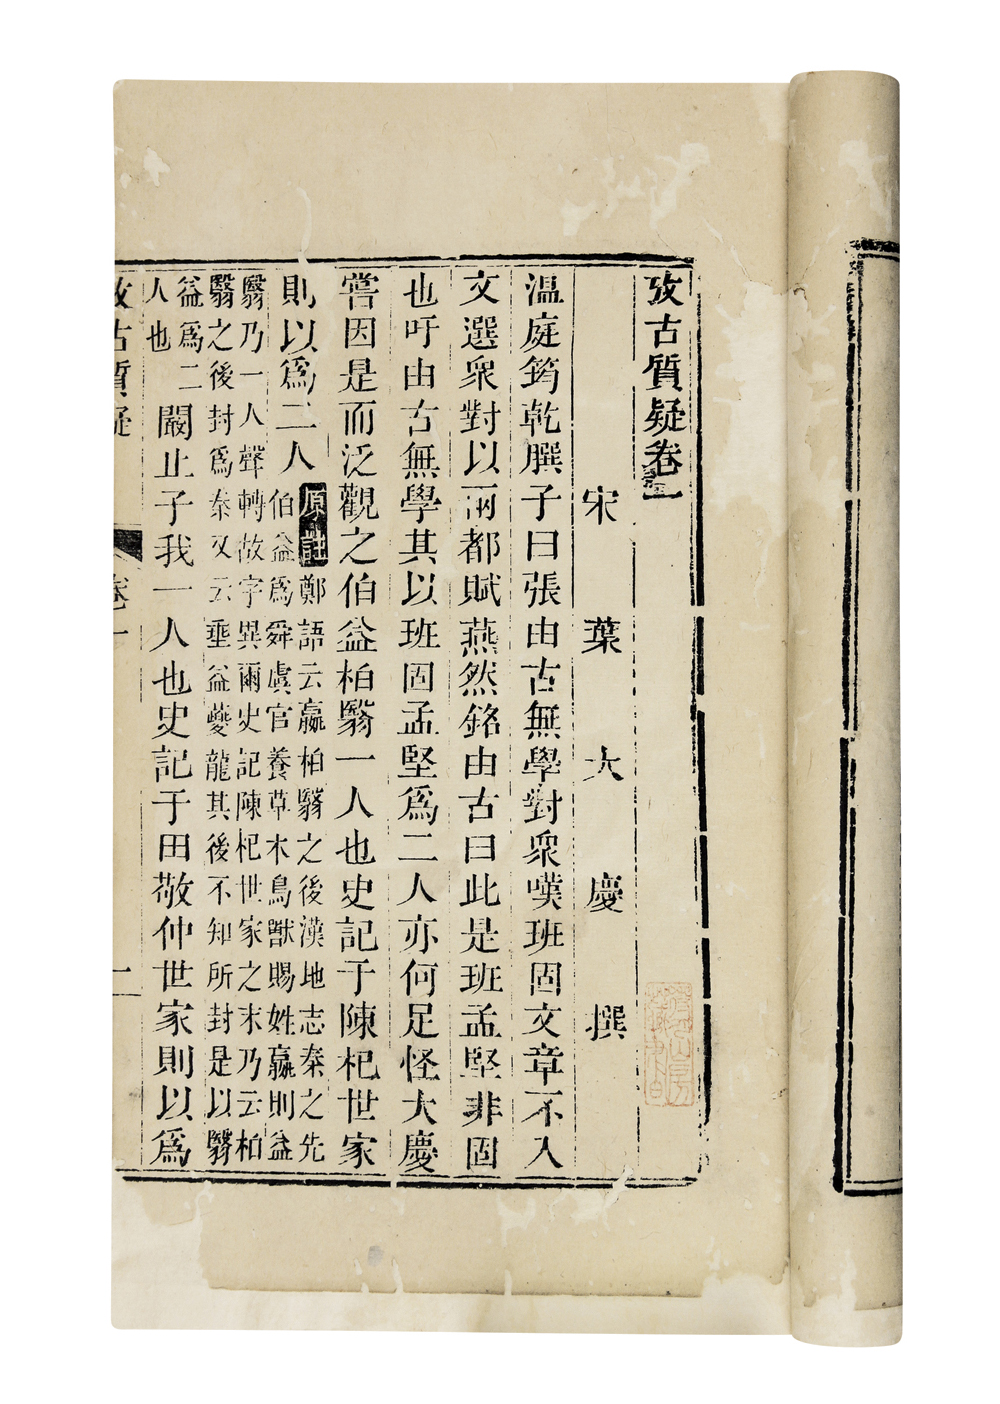 攷古質疑卷一
宋葉大慶撰
溫庭筠乾𦠆子曰張由古無學對衆嘆班固文章不入
文選衆對以兩都賦燕然銘由古曰此是班孟堅非固
也吁由古無學其以班固孟堅爲二人亦何足怪大慶
嘗因是而泛觀之伯益柏翳一人也史記于陳杞世家
則以爲二人
原註鄭語云嬴柏翳之後漢地志秦之先
伯益爲舜虞官養草木鳥獸賜姓嬴則益
翳乃一人聲轉故字異爾史記陳杞世家之末乃云柏
翳之後封爲秦又云垂益夔龍其後不知所封是以翳
益爲二
人也
闞止子我一人也史記于田敬仲世家則以爲
攷古質疑
卷一
一